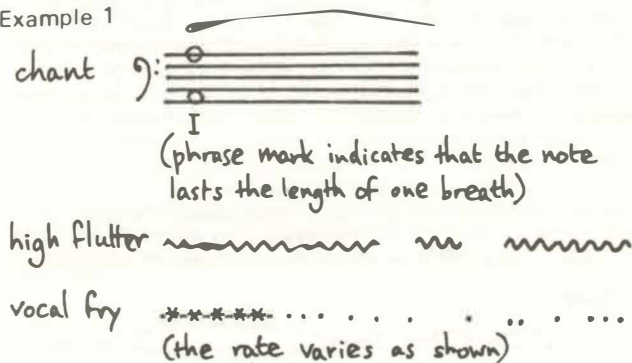 Example 1
chant
I
(phrase mark indicates that the note
lasts the length of one breath)
high flutter
vocal fry
(the rate varies as shown)